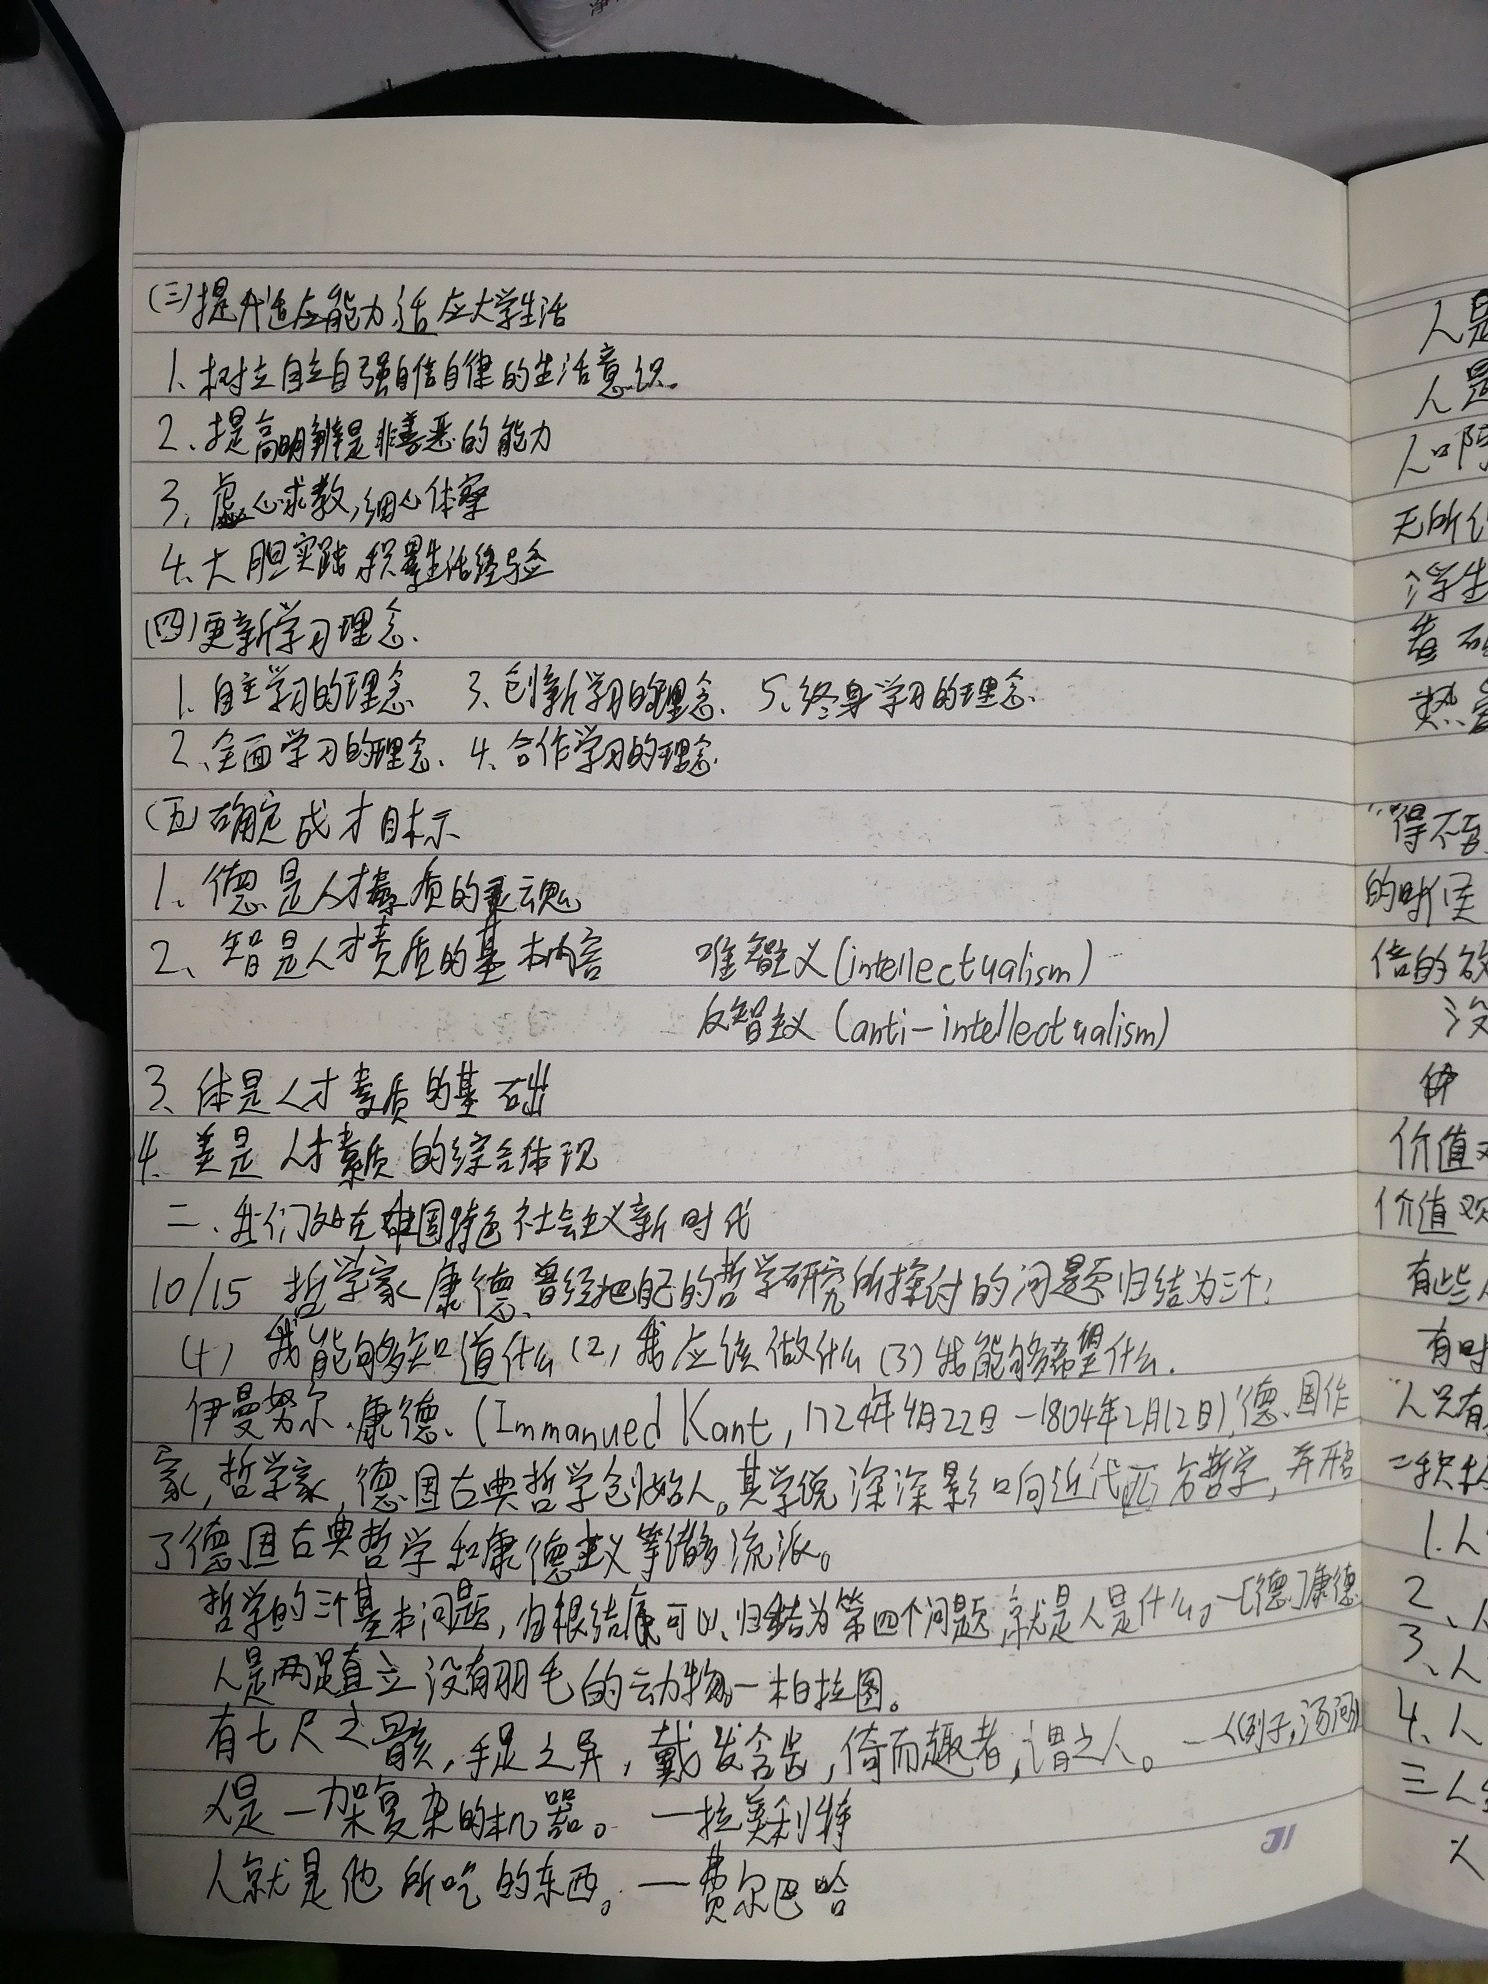 (三)提升适应能力,适应大学生活
1、树立自立自强自信自律的生活意识。
2、提高明辨是非善恶的能力
3、虚心求教,细心体察
4、大胆实践 积累生活经验
(四)更新学习理念、
1、自主学习的理念 3、创新学习的理念、 5、终身学习的理念、
2、全面学习的理念、 4、合作学习的理念
(五)确定成才目标
1、德是人才素质的灵魂
2、智是人才素质的基本内容 唯智主义(intellectualism)
反智主义 (anti-intellectualism)
3、体是人才素质的基础
4、美是人才素质的综合体现
二、我们处在中国特色社会主义新时代
10/15 哲学家康德曾经把自己的哲学研究所探讨的问题归结为三个:
(1) 我能够知道什么 (2) 我应该做什么 (3) 我能够希望什么.
伊曼努尔·康德、(Immanued Kant, 1724年4月22日-1804年2月12日),德国作
家,哲学家,德国古典哲学创始人。其学说深深影响近代西方哲学,并开启
了德国古典哲学和康德主义等诸多流派。
哲学的三个基本问题,归根结底可以归结为第四个问题 就是人是什么。-[德]康德
人是两足直立没有羽毛的动物。—柏拉图。
有七尺之骸,手足之异,戴发含齿,倚而趣者,谓之人。—《列子,汤问》
人是一架复杂的机器。 —拉美利特
人就是他所吃的东西。—费尔巴哈
JI
人是
人是
人口
无所
浮生
着
热
"得不到
的时候
倍的
没
价值
价值观
有些
有时
"人只有
二
1.人
2、
3、人
4、人
三人
人